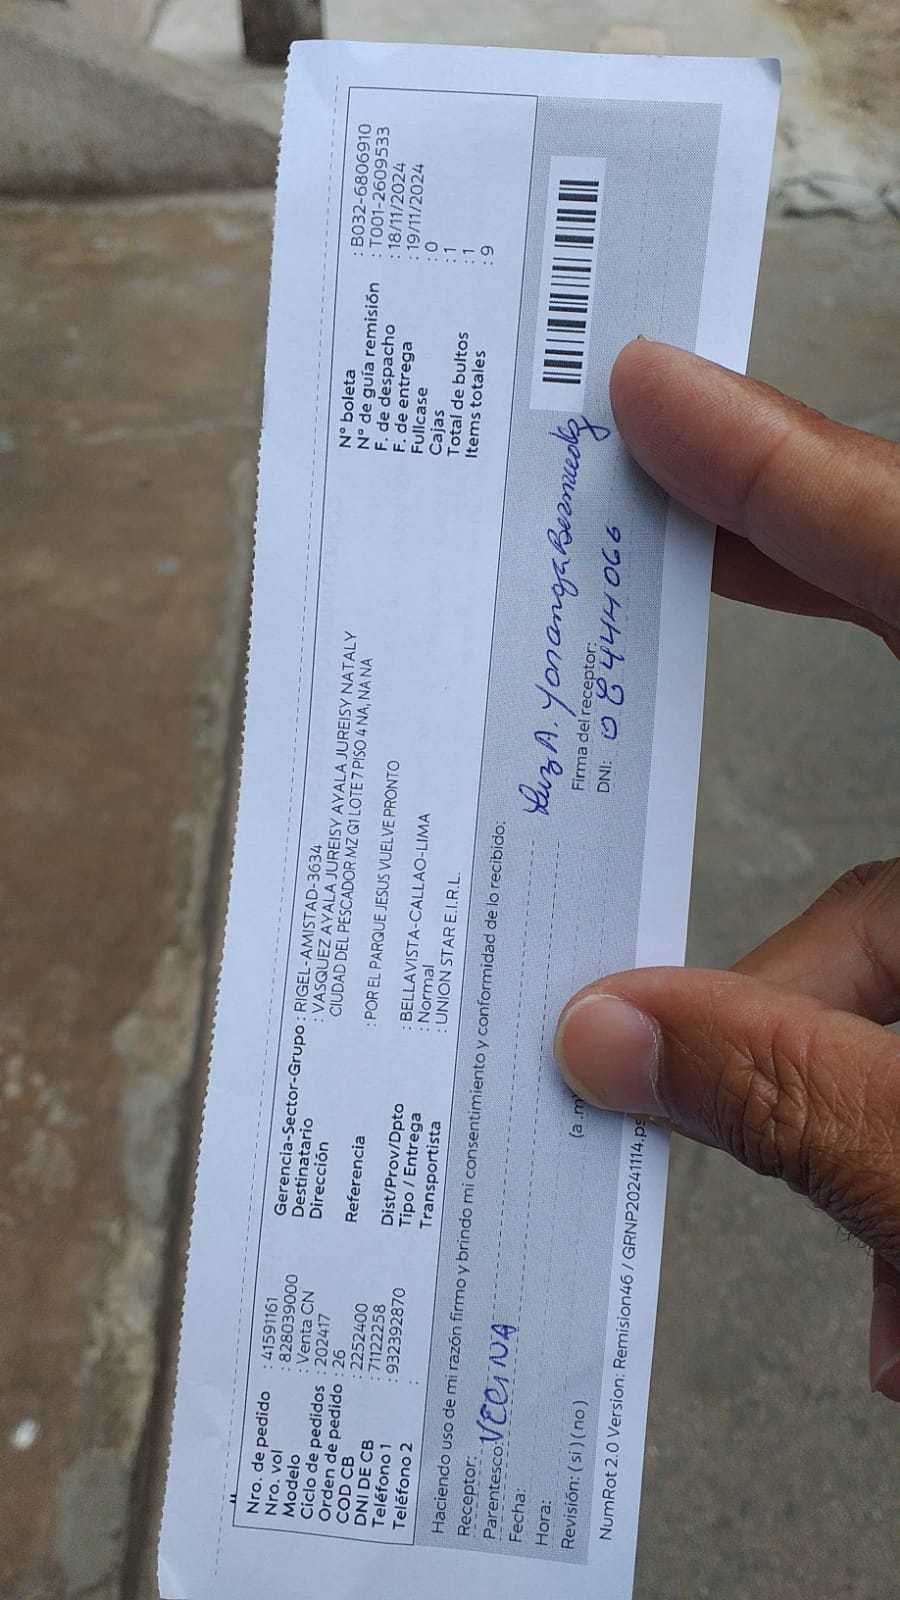 Nro. de pedido : 41591161
Nro. vol : 828039000
Modelo : Venta CN
Ciclo de pedidos : 202417
Orden de pedido : 26
COD CB : 2252400
DNI DE CB : 71122258
Teléfono 1 : 932392870
Teléfono 2 :
Gerencia-Sector-Grupo : RIGEL-AMISTAD-3634
Destinatario : VASQUEZ AYALA JUREISY AYALA JUREISY NATALY
Dirección CIUDAD DEL PESCADOR MZ Q1 LOTE 7 PISO 4 NA, NA NA
Referencia : POR EL PARQUE JESUS VUELVE PRONTO
Dist/Prov/Dpto : BELLAVISTA-CALLAO-LIMA
Tipo / Entrega : Normal
Transportista : UNION STAR E.I.R.L.
N° boleta : B032-6806910
N° de guía remisión : T001-2609533
F. de despacho : 18/11/2024
F. de entrega : 19/11/2024
Fullcase : 0
Cajas : 1
Total de bultos : 1
Items totales : 9
Haciendo uso de mi razón firmo y brindo mi consentimiento y conformidad de lo recibido:
Receptor:
Parentesco: VECINA
Fecha:
Hora: (a .m
Revisión: ( si ) ( no )
Luz A. Yananga Bermudez
Firma del receptor:
DNI: 08444066
NumRot 2.0 Version: Remision46 / GRNP20241114.ps